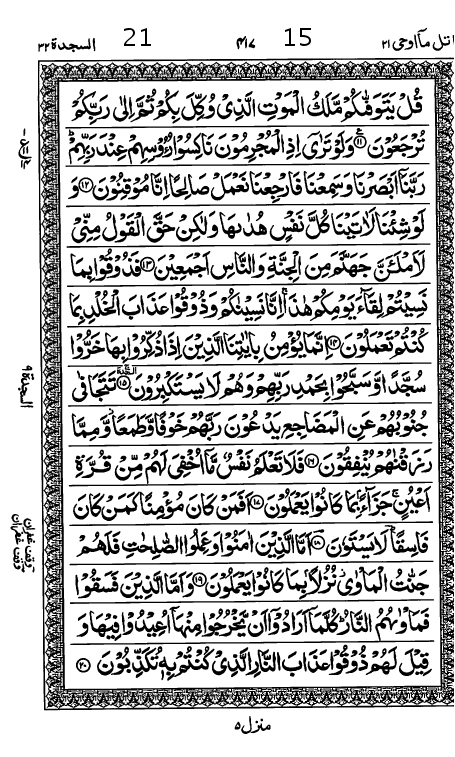 السجدة ٣٢ 21 ٤١٧ 15 اتل مآاوحی ٢١
قُلْ يَتَوَفّٰىكُمْ مَّلَكُ الْمَوْتِ الَّذِیْ وُكِّلَ بِكُمْ ثُمَّ اِلٰى رَبِّكُمْ
تُرْجَعُوْنَ ۝١١ وَلَوْ تَرٰٓى اِذِ الْمُجْرِمُوْنَ نَاكِسُوْا رُءُوْسِهِمْ عِنْدَ رَبِّهِمْ
رَبَّنَاۤ اَبْصَرْنَا وَسَمِعْنَا فَارْجِعْنَا نَعْمَلْ صَالِحًا اِنَّا مُوْقِنُوْنَ ۝١٢ وَ
لَوْ شِئْنَا لَاٰتَيْنَا كُلَّ نَفْسٍ هُدٰىهَا وَلٰكِنْ حَقَّ الْقَوْلُ مِنِّیْ
لَاَمْلَـَٔنَّ جَهَنَّمَ مِنَ الْجِنَّةِ وَالنَّاسِ اَجْمَعِيْنَ ۝١٣ فَذُوْقُوْا بِمَا
نَسِيْتُمْ لِقَآءَ يَوْمِكُمْ هٰذَا ۚ اِنَّا نَسِيْنٰكُمْ وَذُوْقُوْا عَذَابَ الْخُلْدِ بِمَا
كُنْتُمْ تَعْمَلُوْنَ ۝١٤ اِنَّمَا يُؤْمِنُ بِاٰيٰتِنَا الَّذِيْنَ اِذَا ذُكِّرُوْا بِهَا خَرُّوْا
سُجَّدًا وَّسَبَّحُوْا بِحَمْدِ رَبِّهِمْ وَهُمْ لَا يَسْتَكْبِرُوْنَ ۩ ۝١٥ تَتَجَافٰى
جُنُوْبُهُمْ عَنِ الْمَضَاجِعِ يَدْعُوْنَ رَبَّهُمْ خَوْفًا وَّطَمَعًا ۫ وَّمِمَّا
رَزَقْنٰهُمْ يُنْفِقُوْنَ ۝١٦ فَلَا تَعْلَمُ نَفْسٌ مَّاۤ اُخْفِیَ لَهُمْ مِّنْ قُرَّةِ
اَعْيُنٍ ۚ جَزَآءًۢ بِمَا كَانُوْا يَعْمَلُوْنَ ۝١٧ اَفَمَنْ كَانَ مُؤْمِنًا كَمَنْ كَانَ
فَاسِقًا ؕ لَا يَسْتَوٗنَ ۝١٨ اَمَّا الَّذِيْنَ اٰمَنُوْا وَعَمِلُوا الصّٰلِحٰتِ فَلَهُمْ
جَنّٰتُ الْمَاْوٰى ؗ نُزُلًۢا بِمَا كَانُوْا يَعْمَلُوْنَ ۝١٩ وَاَمَّا الَّذِيْنَ فَسَقُوْا
فَمَاْوٰىهُمُ النَّارُ ؕ كُلَّمَاۤ اَرَادُوْۤا اَنْ يَّخْرُجُوْا مِنْهَاۤ اُعِيْدُوْا فِيْهَا وَ
قِيْلَ لَهُمْ ذُوْقُوْا عَذَابَ النَّارِ الَّذِیْ كُنْتُمْ بِهٖ تُكَذِّبُوْنَ ۝٢٠
السجدة ٩
وقف غفران
وقف غفران
منزل ٥